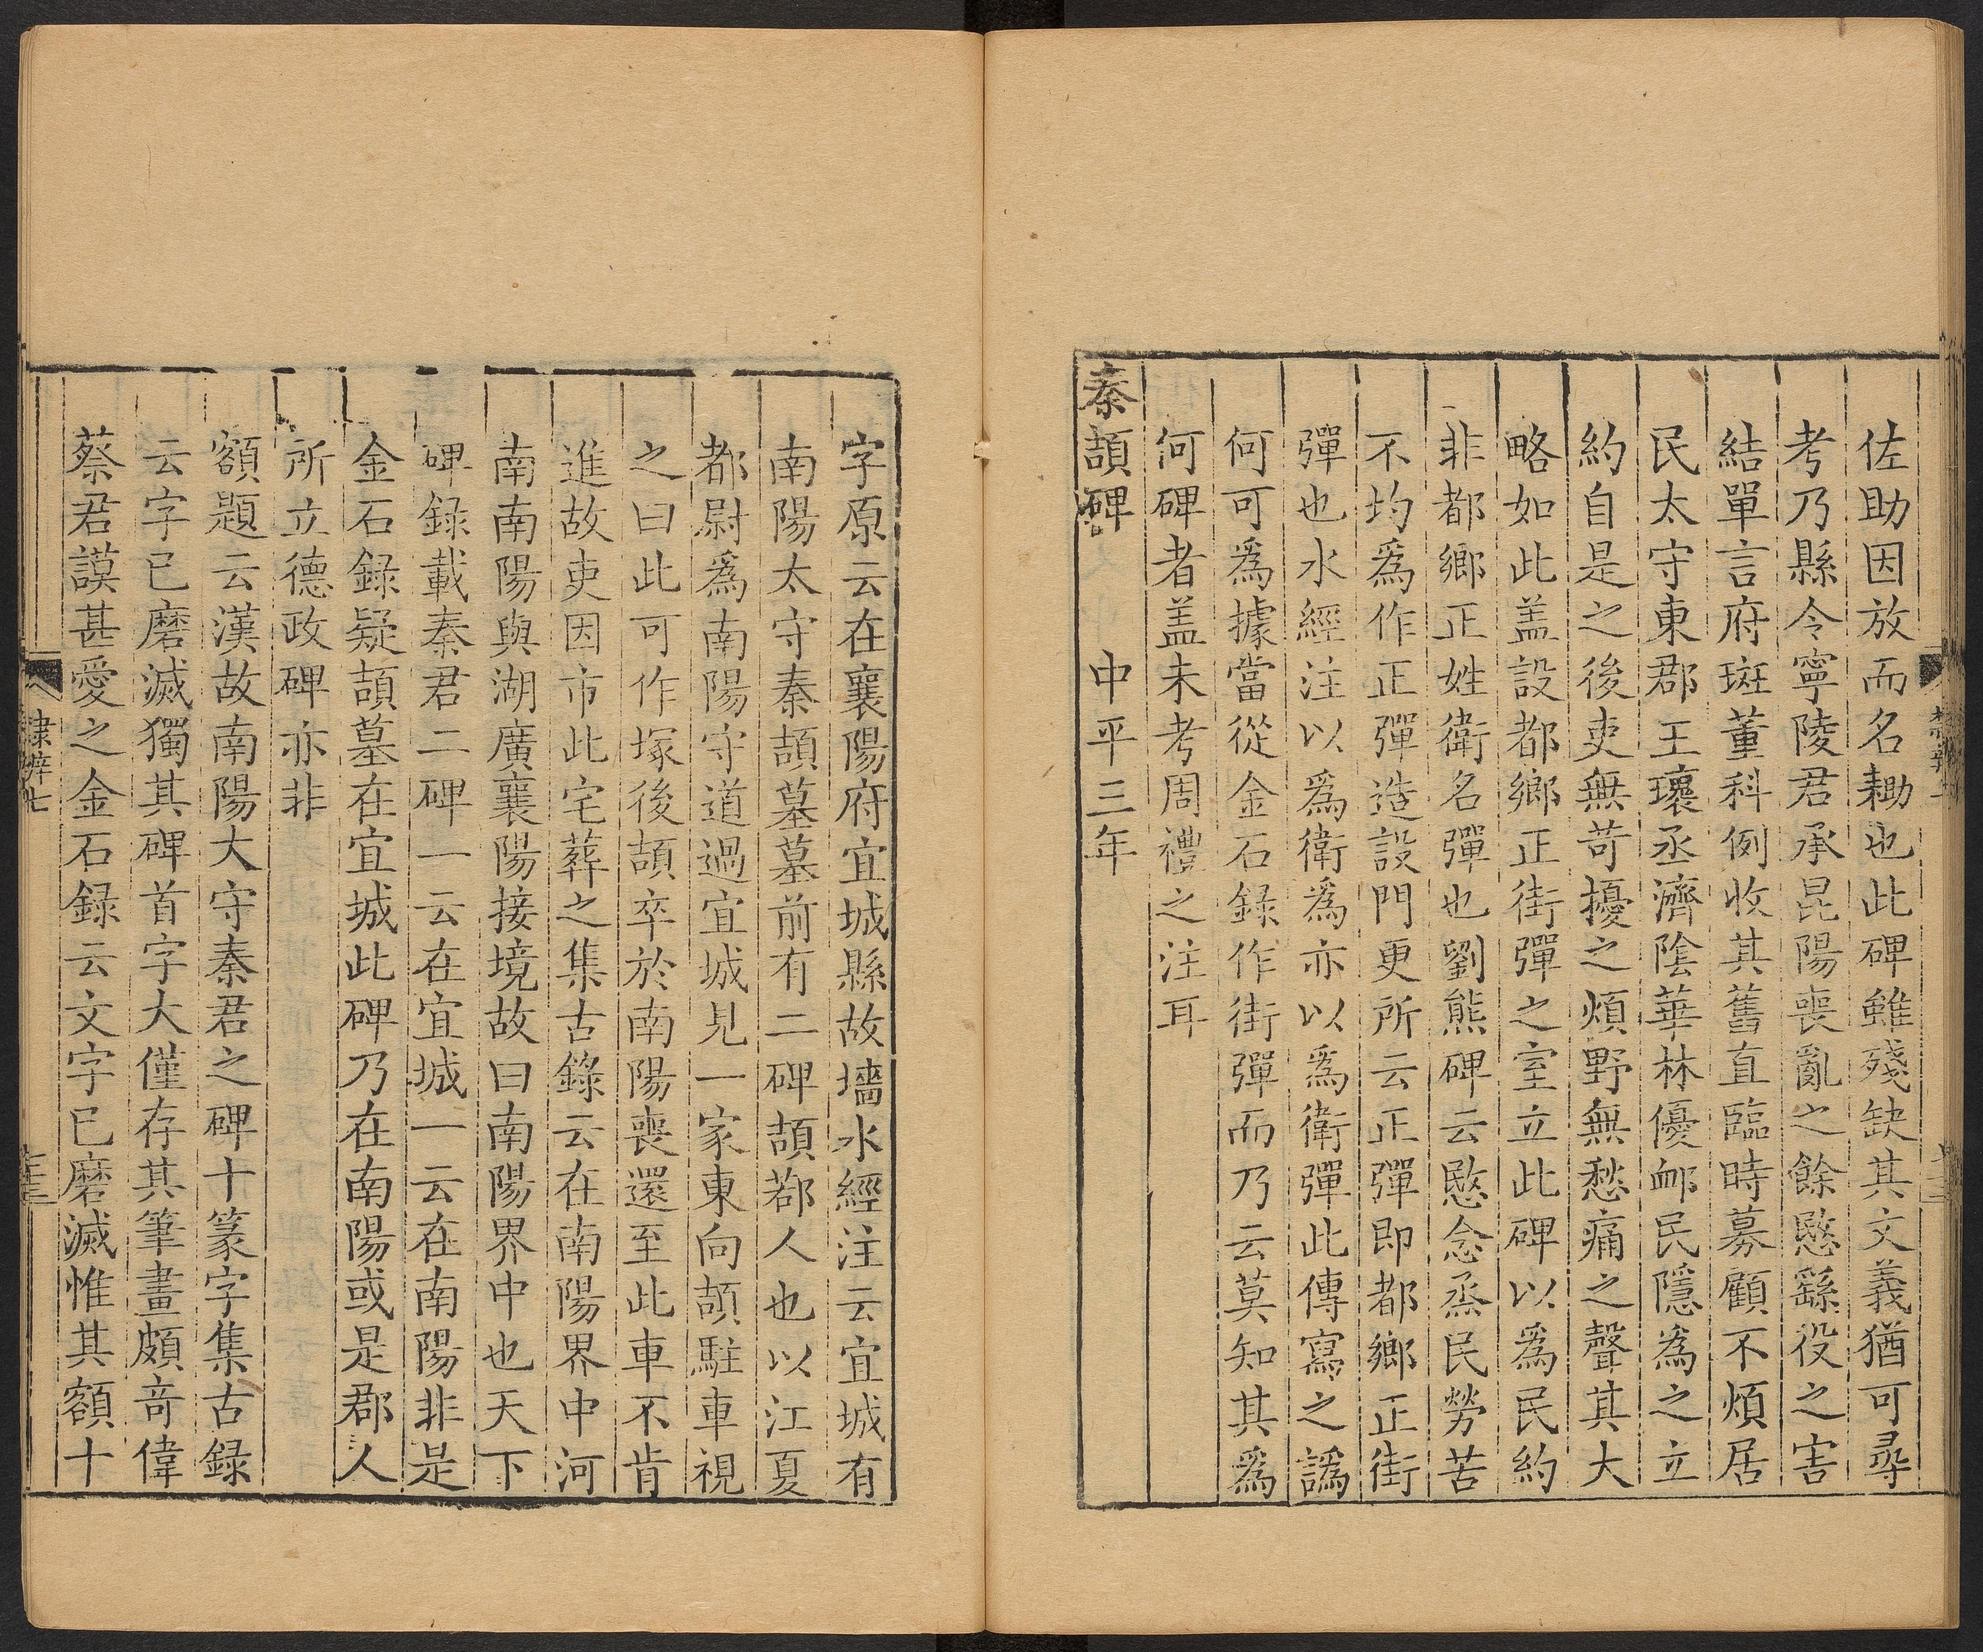 佐助因放而名耡也此碑雖殘缺其文義猶可尋
考乃縣令寧陵君承昆陽喪亂之餘愍繇役之害
結單言府斑董科例收其舊直臨時募顧不煩居
民太守東郡王瓌丞濟陰華林優䘏民隱為之立
約自是之後吏無苛擾之煩野無愁痛之聲其大
略如此盖設都鄉正街彈之室立此碑以為民約
非都鄉正姓衛名彈也劉熊碑云愍念烝民勞苦
不均為作正彈造設門更所云正彈即都鄉正街
彈也水經注以為衛為亦以為衛彈此傳寫之譌
何可為據當從金石錄作街彈而乃云莫知其為
何碑者盖未考周禮之注耳
秦頡碑 中平三年
字原云在襄陽府宜城縣故墻水經注云宜城有
南陽太守秦頡墓墓前有二碑頡鄀人也以江夏
都尉為南陽守道過宜城見一家東向頡駐車視
之曰此可作塚後頡卒於南陽喪還至此車不肯
進故吏因市此宅葬之集古錄云在南陽界中河
南南陽與湖廣襄陽接境故曰南陽界中也天下
碑錄載秦君二碑一云在宜城一云在南陽非是
金石錄疑頡墓在宜城此碑乃在南陽或是郡人
所立德政碑亦非
額題云漢故南陽大守秦君之碑十篆字集古録
云字已磨滅獨其碑首字大僅存其筆畫頗奇偉
蔡君謨甚愛之金石録云文字已磨滅惟其額十
隸辨七